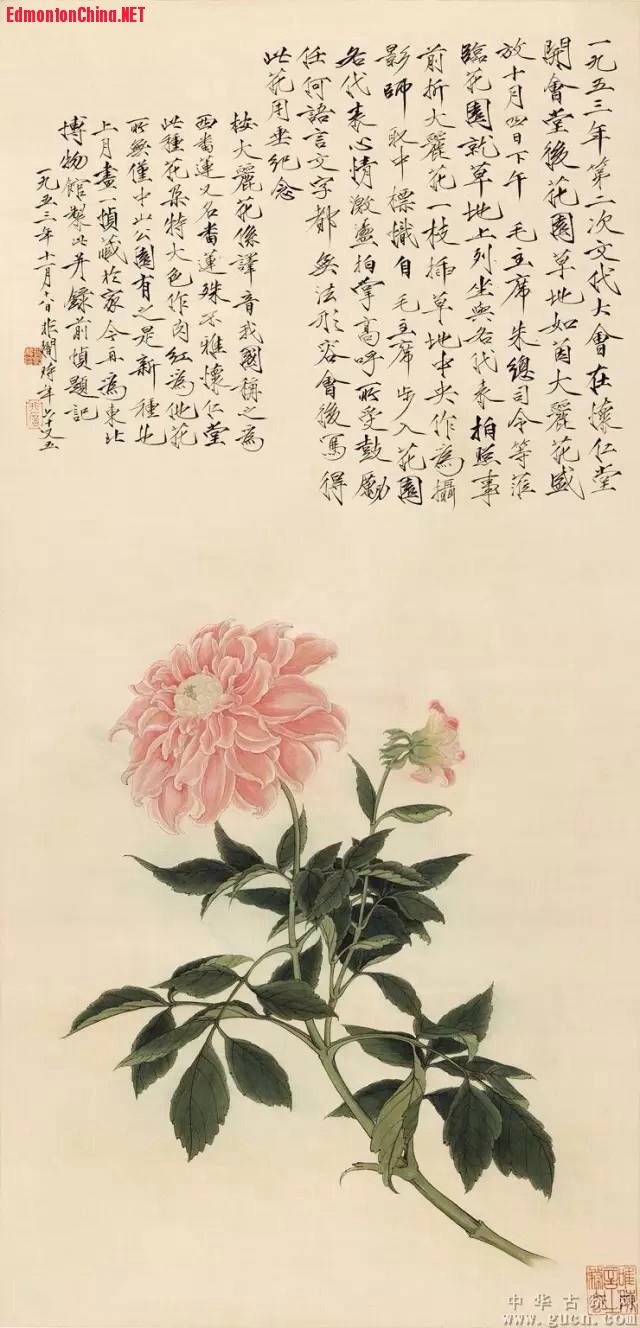 EdmontonChina.NET
一九五三年第二次文代大會在懷仁堂
開會堂後花園草地如茵大麗花盛
放十月四日下午 毛主席朱總司令等蒞
臨花園就草地上列坐與各代表拍照事
前折大麗花一枝插草地中央作為攝
影師取中標幟自毛主席步入花園
各代表心情激盪拍掌高呼所受鼓勵
任何語言文字都無法形容會後寫得
此花用垂紀念
按大麗花係譯音我國稱之為
西番蓮又名番蓮殊不雅懷仁堂
此種花朵特大色作肉紅為他花
所無僅中山公園有之是新種也
上月畫一幀藏於家今再為東北
博物館製此并錄前幀題記
一九五三年十一月六日非闇時年六十又五
中华古玩网
www.gucn.com